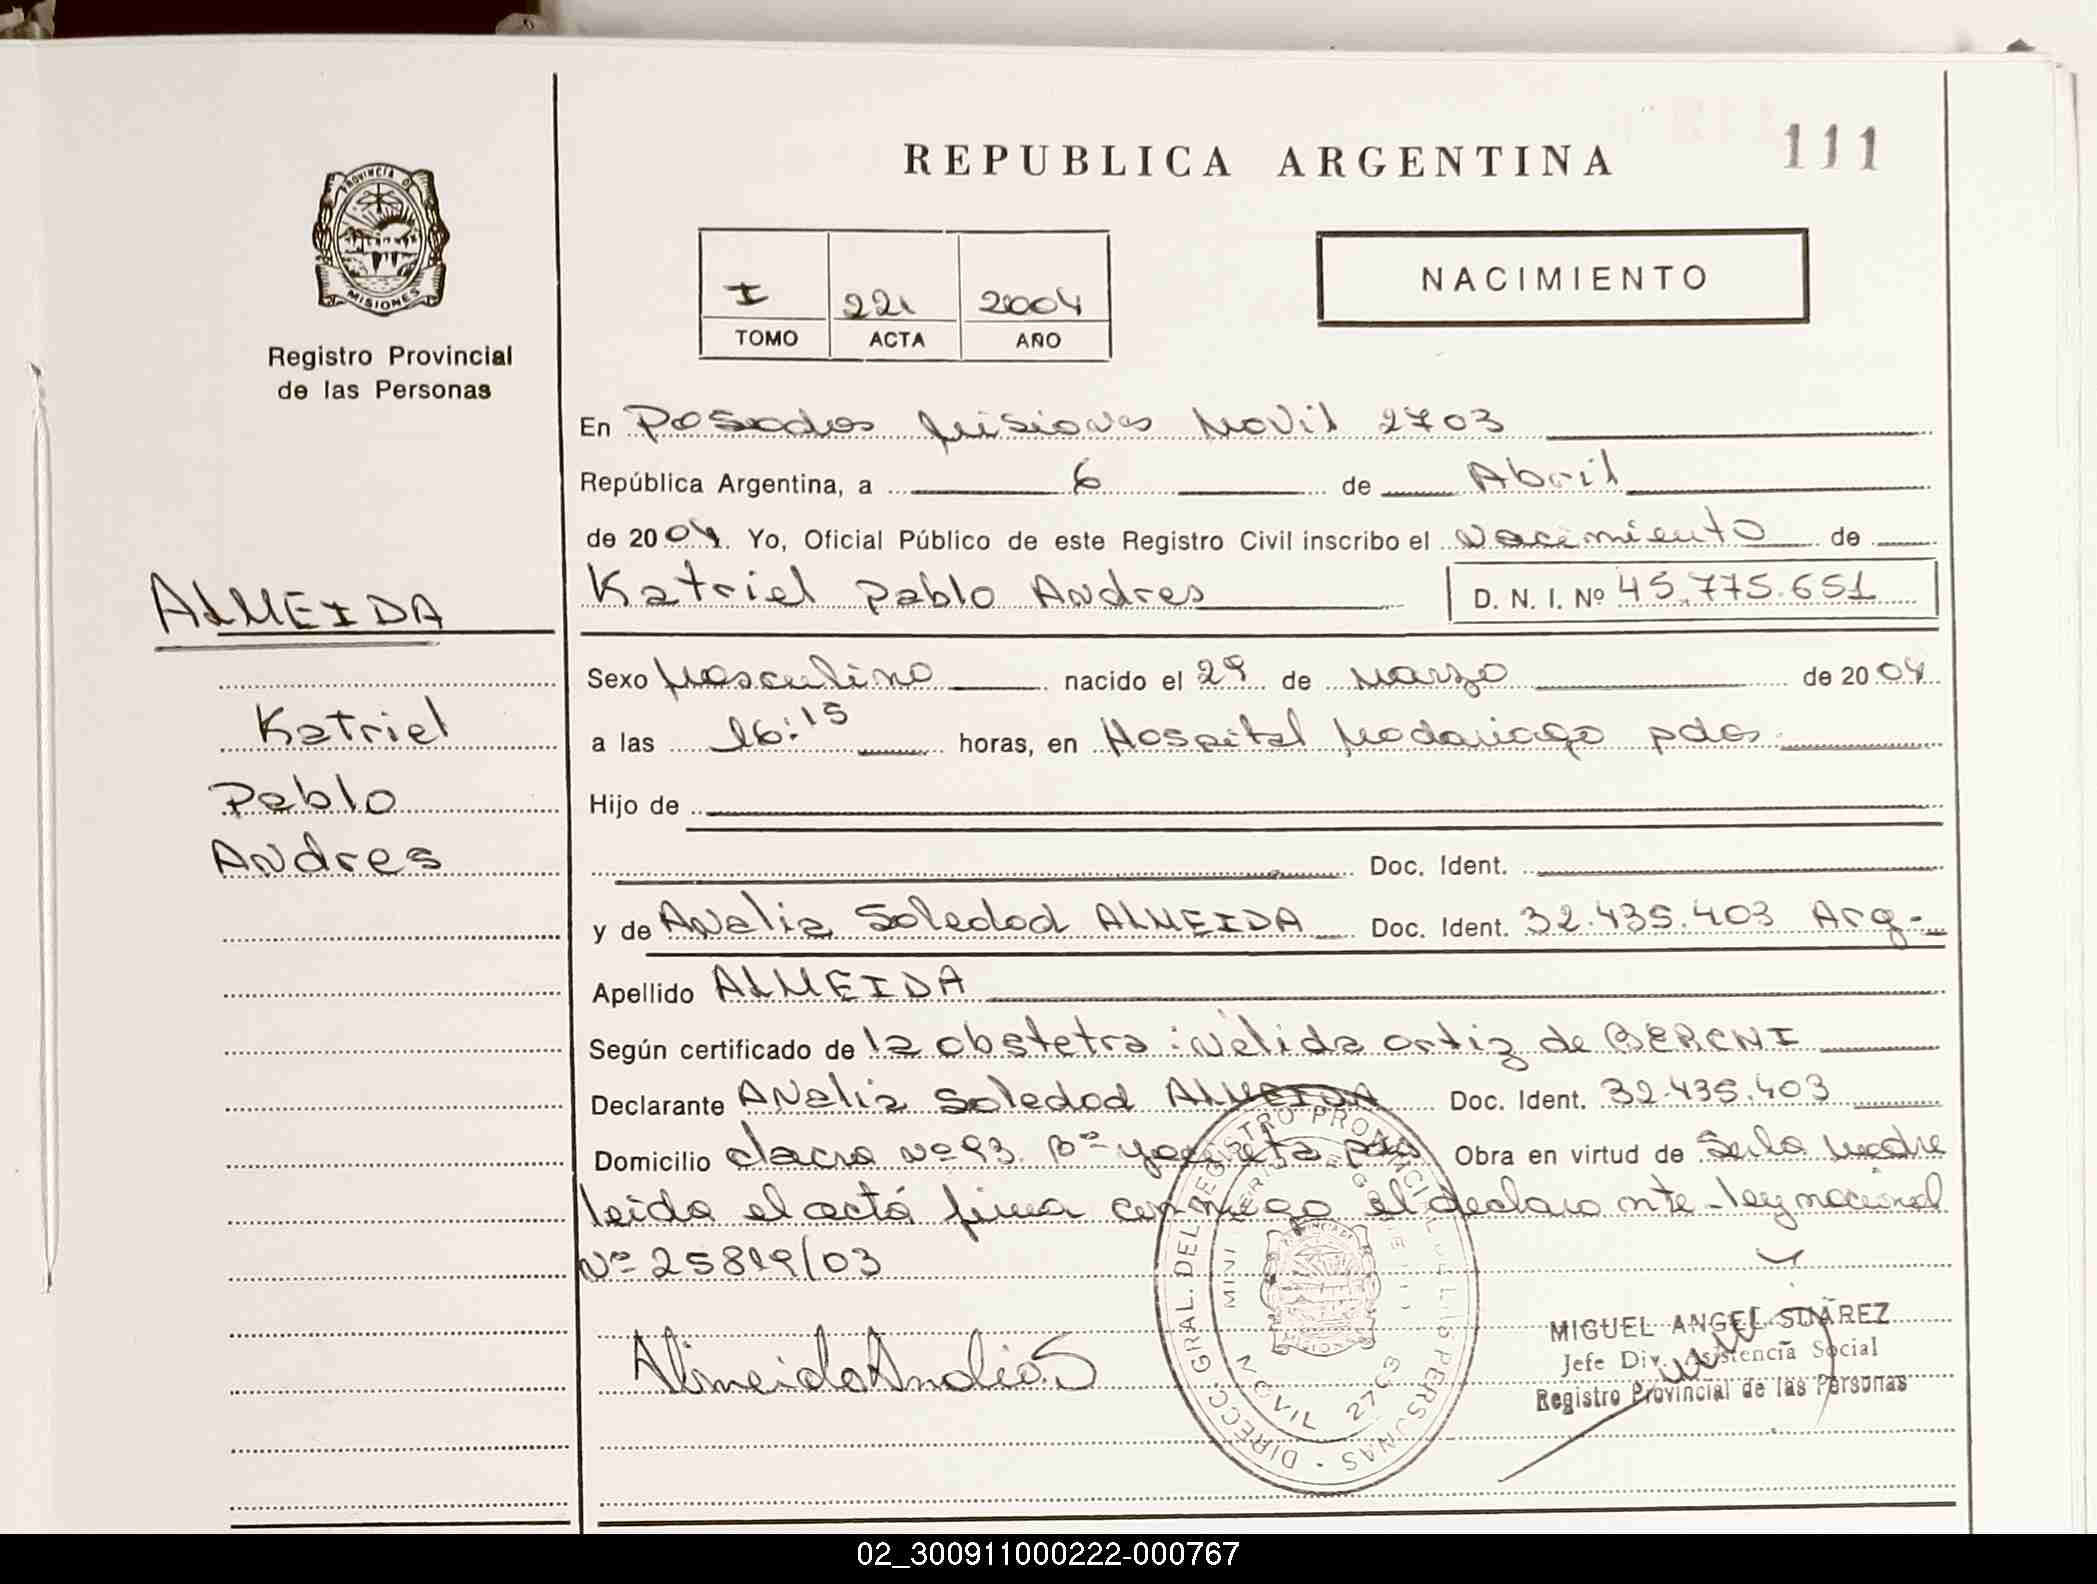 REPUBLICA ARGENTINA
111
PROVINCIA DE
MISIONES
Registro Provincial
de las Personas
I 221 2004
TOMO ACTA AÑO
NACIMIENTO
En Posadas Misiones Movil 2703
República Argentina, a 6 de Abril
de 2004. Yo, Oficial Público de este Registro Civil inscribo el Nacimiento de
Katriel Pablo Andres D. N. I. Nº 45.775.651
ALMEIDA
Katriel
Pablo
Andres
Sexo Masculino nacido el 29 de Marzo de 2004
a las 16:15 horas, en Hospital Madariaga pdas.
Hijo de
Doc. Ident.
y de Analia Soledad ALMEIDA Doc. Ident. 32.435.403 Arg.-
Apellido ALMEIDA
Según certificado de la obstetra: Nelida Ortiz de
Declarante Analia Soledad ALMEIDA Doc. Ident. 32.435.403
Domicilio chacra Nº 93. Bº Yacyreta pdas Obra en virtud de Ser la Madre
leida el acta firma conmigo el declarante - ley nacional
Nº 25819/03
Almeida Analia S
DIRECC. GRAL. DEL REGISTRO PROVINCIAL DE LAS PERSONAS
MOVIL 2703
MIGUEL ANGEL SUÁREZ
Jefe Div. Asistencia Social
Registro Provincial de las Personas
02_300911000222-000767